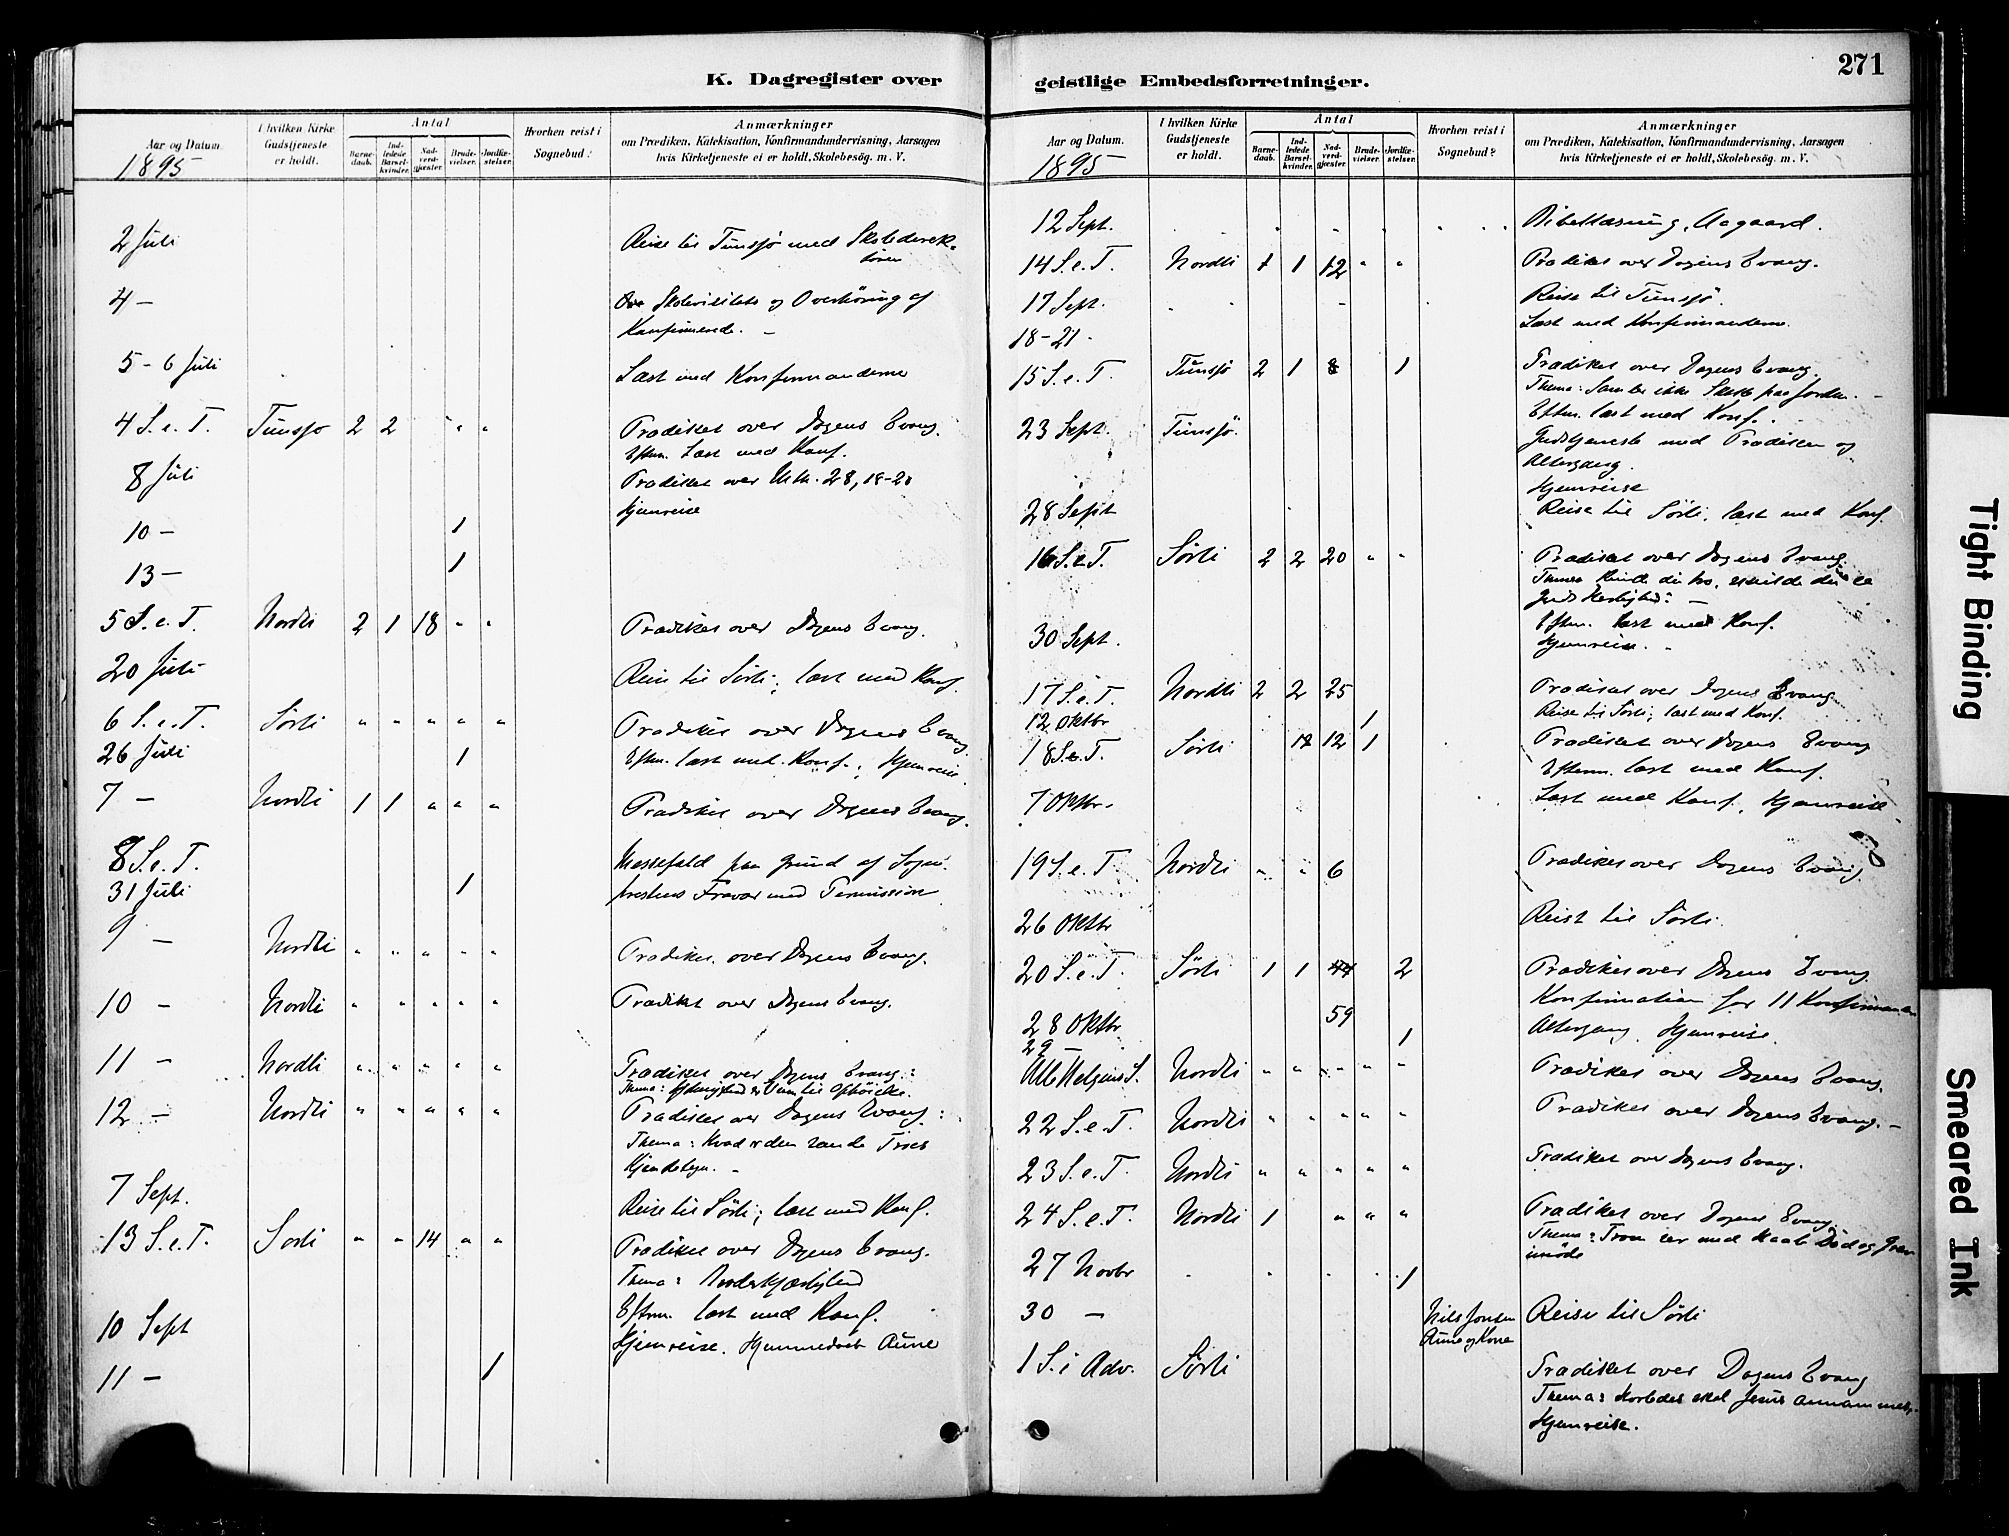 K. Dagregister over
Aar og Datum.
1895
I hvilken Kirke Gudstjeneste er holdt.
Antal
Barnedaab.
Indledede Barselkvinder.
Nadverdgjæster.
Brudevielser.
Jordfæstelser.
Hvorhen reist i Sognebud?
Anmærkninger
om Prædiken, Katekisation, Konfirmandundervisning, Aarsagen
hvis Kirketjeneste ei er holdt, Skolebesög. m. V.
2 Juli Reise til Tunsjø med Skoledirek-
tøren
4 - Skolevisitats og Overhöring af
Konfirmerede. -
5-6 Juli Læst med Konfirmanderne
4 S. e. T. Tunsjø 2 2 " " " Prædiket over Dagens Evang.
Efterm. Læst med Konf.
8 Juli Prædiket over Mth. 28, 18-20
Hjemreise
10 - 1
13 - 1
5 S. e. T. Nordli 2 1 18 " " Prædiket over Dagens Evang.
20 Juli Reise til Sörli; læst med Konf.
6 S. e. T. Sörli " " " " " Prædiket over Dagens Evang
26 Juli 1 Efterm. læst med Konf.; Hjemreise
7 - Nordli 1 1 " " " Prædiket over Dagens Evang.
8 S. e. T. Messefald paa Grund af Sogne-
31 Juli 1 prestens Fravær med Permission
9 - Nordli " " " " " Prædiket over Dagens Evang.
10 - Nordli " " " " " Prædiket over Dagens Evang.
11 - Nordli " " " " " Prædiket over Dagens Evang:
Thema: Ydmyghed er Veien til Ophöielse.
12 - Nordli " " " " " Prædiket over Dagens Evang:
Thema: Hvad er den sande Troes
Kjendetegn. -
7 Sept. Reise til Sörli; læst med Konf.
13 S. e. T. Sörli " " 14 " " Prædiket over Dagens Evang.
Thema: Broderkjærlighed
Efterm. læst med Konf.
10 Sept Hjemreise. Aune
11 - 1
geistlige Embedsforretninger.
271
Aar og Datum.
1895
I hvilken Kirke Gudstjeneste er holdt.
Antal
Barnedaab.
Indledede Barselkvinder.
Nadverdgjæster.
Brudevielser.
Jordfæstelser.
Hvorhen reist i Sognebud?
Anmærkninger
om Prædiken, Katekisation, Konfirmandundervisning, Aarsagen
hvis Kirketjeneste ei er holdt, Skolebesög. m. V.
12 Sept. Bibellæsning, Aagaard.
14 S. e. T. Nordli 1 1 12 " " Prædiket over Dagens Evang.
17 Sept. Reise til Tunsjø.
18-21 - Læst med Konfirmanderne.
15 S. e. T. Tunsjø 2 1 8 1 Prædiket over Dagens Evang.
Thema: Samler ikke Skatte paa Jorden. -
Efterm. læst med Konf.
23 Sept. Tunsjø. Gudstjeneste med Prædiken og
Altergang.
Hjemreise
28 Sept Reise til Sörli, læst med Konf.
16 S. e. T. Sörli 2 2 20 " " Prædiket over Dagens Evang.
Guds Herlighed: -
Efterm. læst med Konf.
30 Sept. Hjemreise.
17 S. e. T. Nordli 2 2 25 Prædiket over Dagens Evang
12 Oktbr 1 Reise til Sörli; læst med Konf.
18 S. e. T. Sörli 12 12 1 Prædiket over Dagens Evang
Efterm. læst med Konf.
7 Oktbr. Læst med Konf. Hjemreise
19 S. e. T. Nordli " " 6 Prædiket over Dagens Evang.
26 Oktbr Reist til Sörli.
20 S. e. T. Sörli 1 1 44 2 Prædiket over Dagens Evang
59 Konfirmation for 11 Konfirmander
28 Oktbr Altergang. Hjemreise.
29 - 1
Alle Helgens S. Nordli " " " " " Prædiket over Dagens Evang.
22 S. e. T. Nordli " " " " " Prædiket over Dagens Evang. -
23 S. e. T. Nordli " " " " " Prædiket over Dagens Evang.
24 S. e. T. Nordli 1 " " " Prædiket over Dagens Evang.
Thema: Troen ser med Haab Död og Grav
imöde
27 Novbr 1
30 - Nils Aune og Kone Reise til Sörli
1 S. i Adv. Sörli Prædiket over Dagens Evang
Thema: Hvorledes skal Jesus annammes.
Hjemreise.
Tight Binding
Smeared Ink